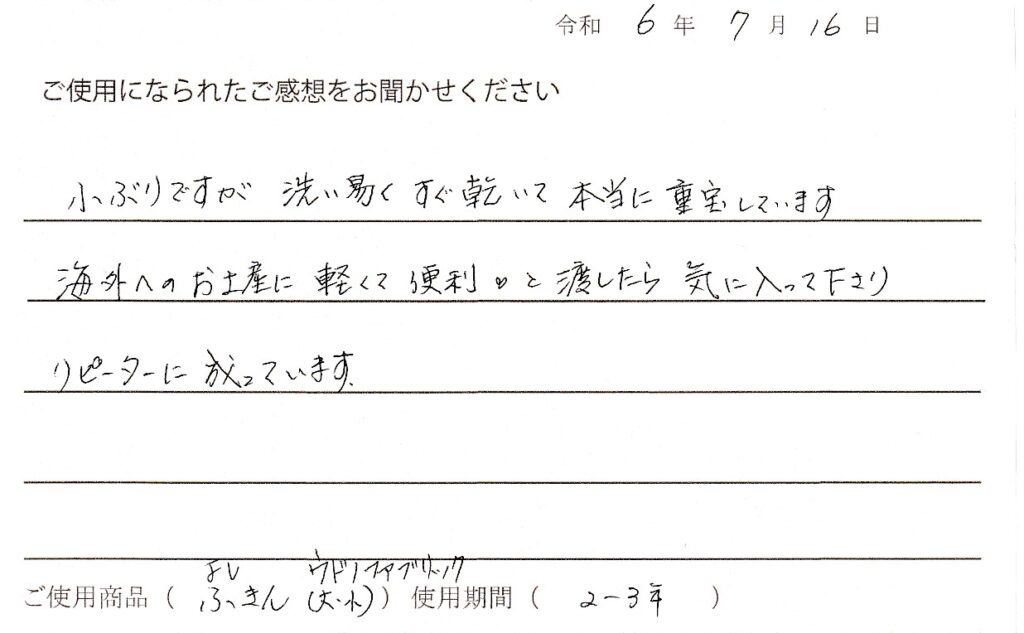 令和 6 年 7 月 16 日
ご使用になられたご感想をお聞かせください
小ぶりですが 洗い易く すぐ乾いて 本当に重宝しています
海外へのお土産に 軽くて 便利♡と渡したら 気に入って下さり
リピーターに 成っています。
よし ウドノファブリック
ご使用商品（ ふきん (大・小) ）使用期間（ 2-3年 ）